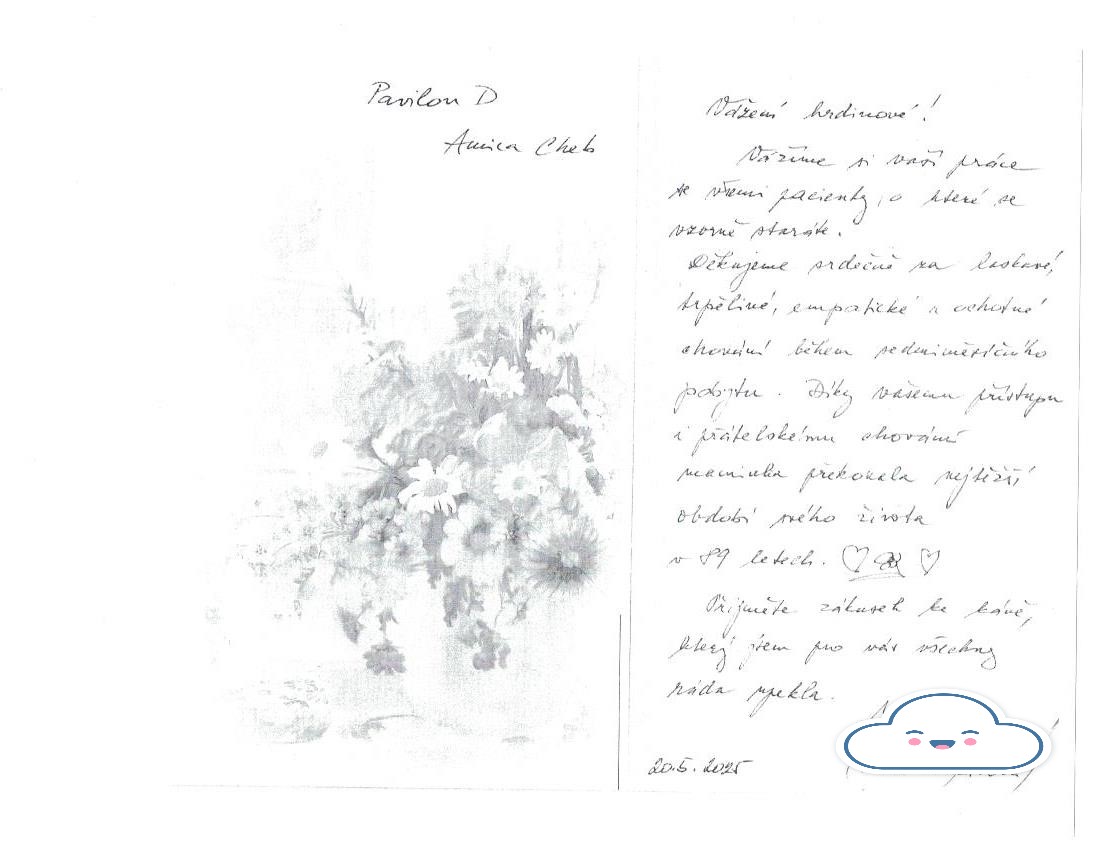 Pavilon D
Amica Cheb
Vážení hrdinové!
Vážíme si vaší práce
se všemi pacienty, o které se
vzorně staráte.
Děkujeme srdečně za laskavé,
trpělivé, empatické a ochotné
chování během sedmiměsíčního
pobytu. Díky vašemu přístupu
i přátelskému chování
maminka překonala nejtěžší
období svého života
v 89 letech.
Přijměte zákusek ke kávě,
který jsem pro vás všechny
ráda upekla.
20.5.2025